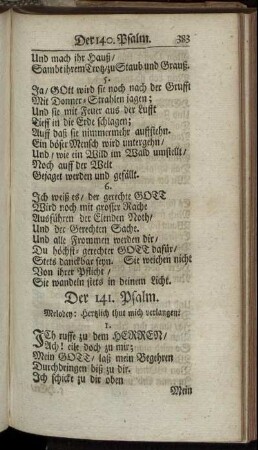 Der 140. Psalm. 383
Und mach ihr Hauß/
Sambt ihrem Trotz/ zu Staub und Grauß.
5.
Ja/ GOtt wird sie noch nach der Grufft
Mit Donner-Strahlen jagen;
Und sie mit Feuer aus der Lufft
Tieff in die Erde schlagen;
Auff daß sie nimmermehr aufstehn.
Ein böser Mensch wird untergehn/
Und/ wie ein Wild im Wald umstellt/
Noch auff der Welt
Gejaget werden und gefällt.
6.
Ich weiß es/ der gerechte GOTT
Wird noch mit grosser Rache
Ausführen der Elenden Noth/
Und der Gerechten Sache.
Und alle Frommen werden dir/
Du höchst-gerechter GOTT dafür/
Stets danckbar seyn. Sie weichen nicht
Von ihrer Pflicht/
Sie wandeln stets in deinem Licht.
Der 141. Psalm.
Melodey: Hertzlich thut mich verlangen/
1.
ICh ruffe zu dem HERREN/
Ach! eile doch zu mir;
Mein GOTT/ laß mein Begehren
Durchdringen biß zu dir.
Ich schicke zu dir oben
Mein